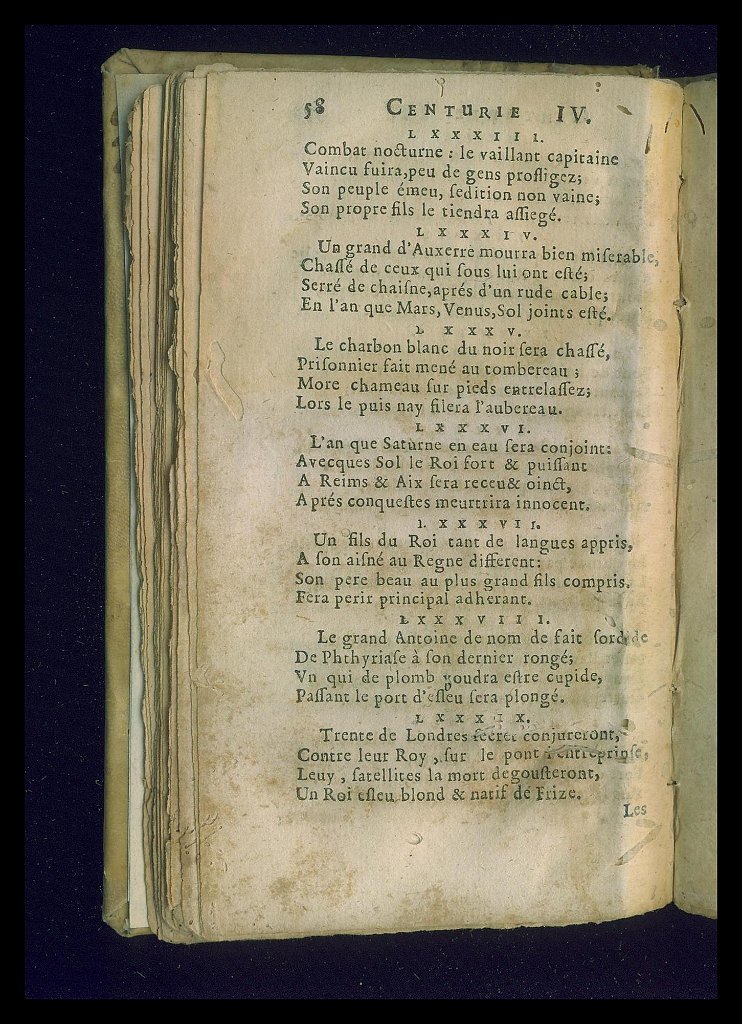 58 CENTURIE IV.
LXXXIII.
Combat nocturne : le vaillant capitaine
Vaincu fuira,peu de gens profligez;
Son peuple émeu, ſedition non vaine;
Son propre fils le tiendra aſſiegé.
LXXXIV.
Un grand d'Auxerre mourra bien miſerable,
Chaſſé de ceux qui ſous lui ont eſté;
Serré de chaiſne,aprés d'un rude cable;
En l'an que Mars,Venus,Sol joints eſté.
LXXXV.
Le charbon blanc du noir ſera chaſſé,
Priſonnier fait mené au tombereau ;
More chameau ſur pieds entrelaſſez;
Lors le puis nay filera l'aubereau.
LXXXVI.
L'an que Saturne en eau ſera conjoint:
Avecques Sol le Roi fort & puiſſant
A Reims & Aix ſera receu& oinct,
Aprés conqueſtes meurtrira innocent.
LXXXVII.
Un fils du Roi tant de langues appris,
A ſon aiſné au Regne different:
Son pere beau au plus grand fils compris.
Fera perir principal adherant.
LXXXVIII.
Le grand Antoine de nom de fait ſordide
De Phthyriaſe à ſon dernier rongé;
Vn qui de plomb voudra eſtre cupide,
Paſſant le port d'eſleu ſera plongé.
LXXXIX.
Trente de Londres ſecret conjureront,
Contre leur Roy , ſur le pont l'entreprinſe,
Leuy , ſatellites la mort degouſteront,
Un Roi eſleu blond & natif de Frize.
Les